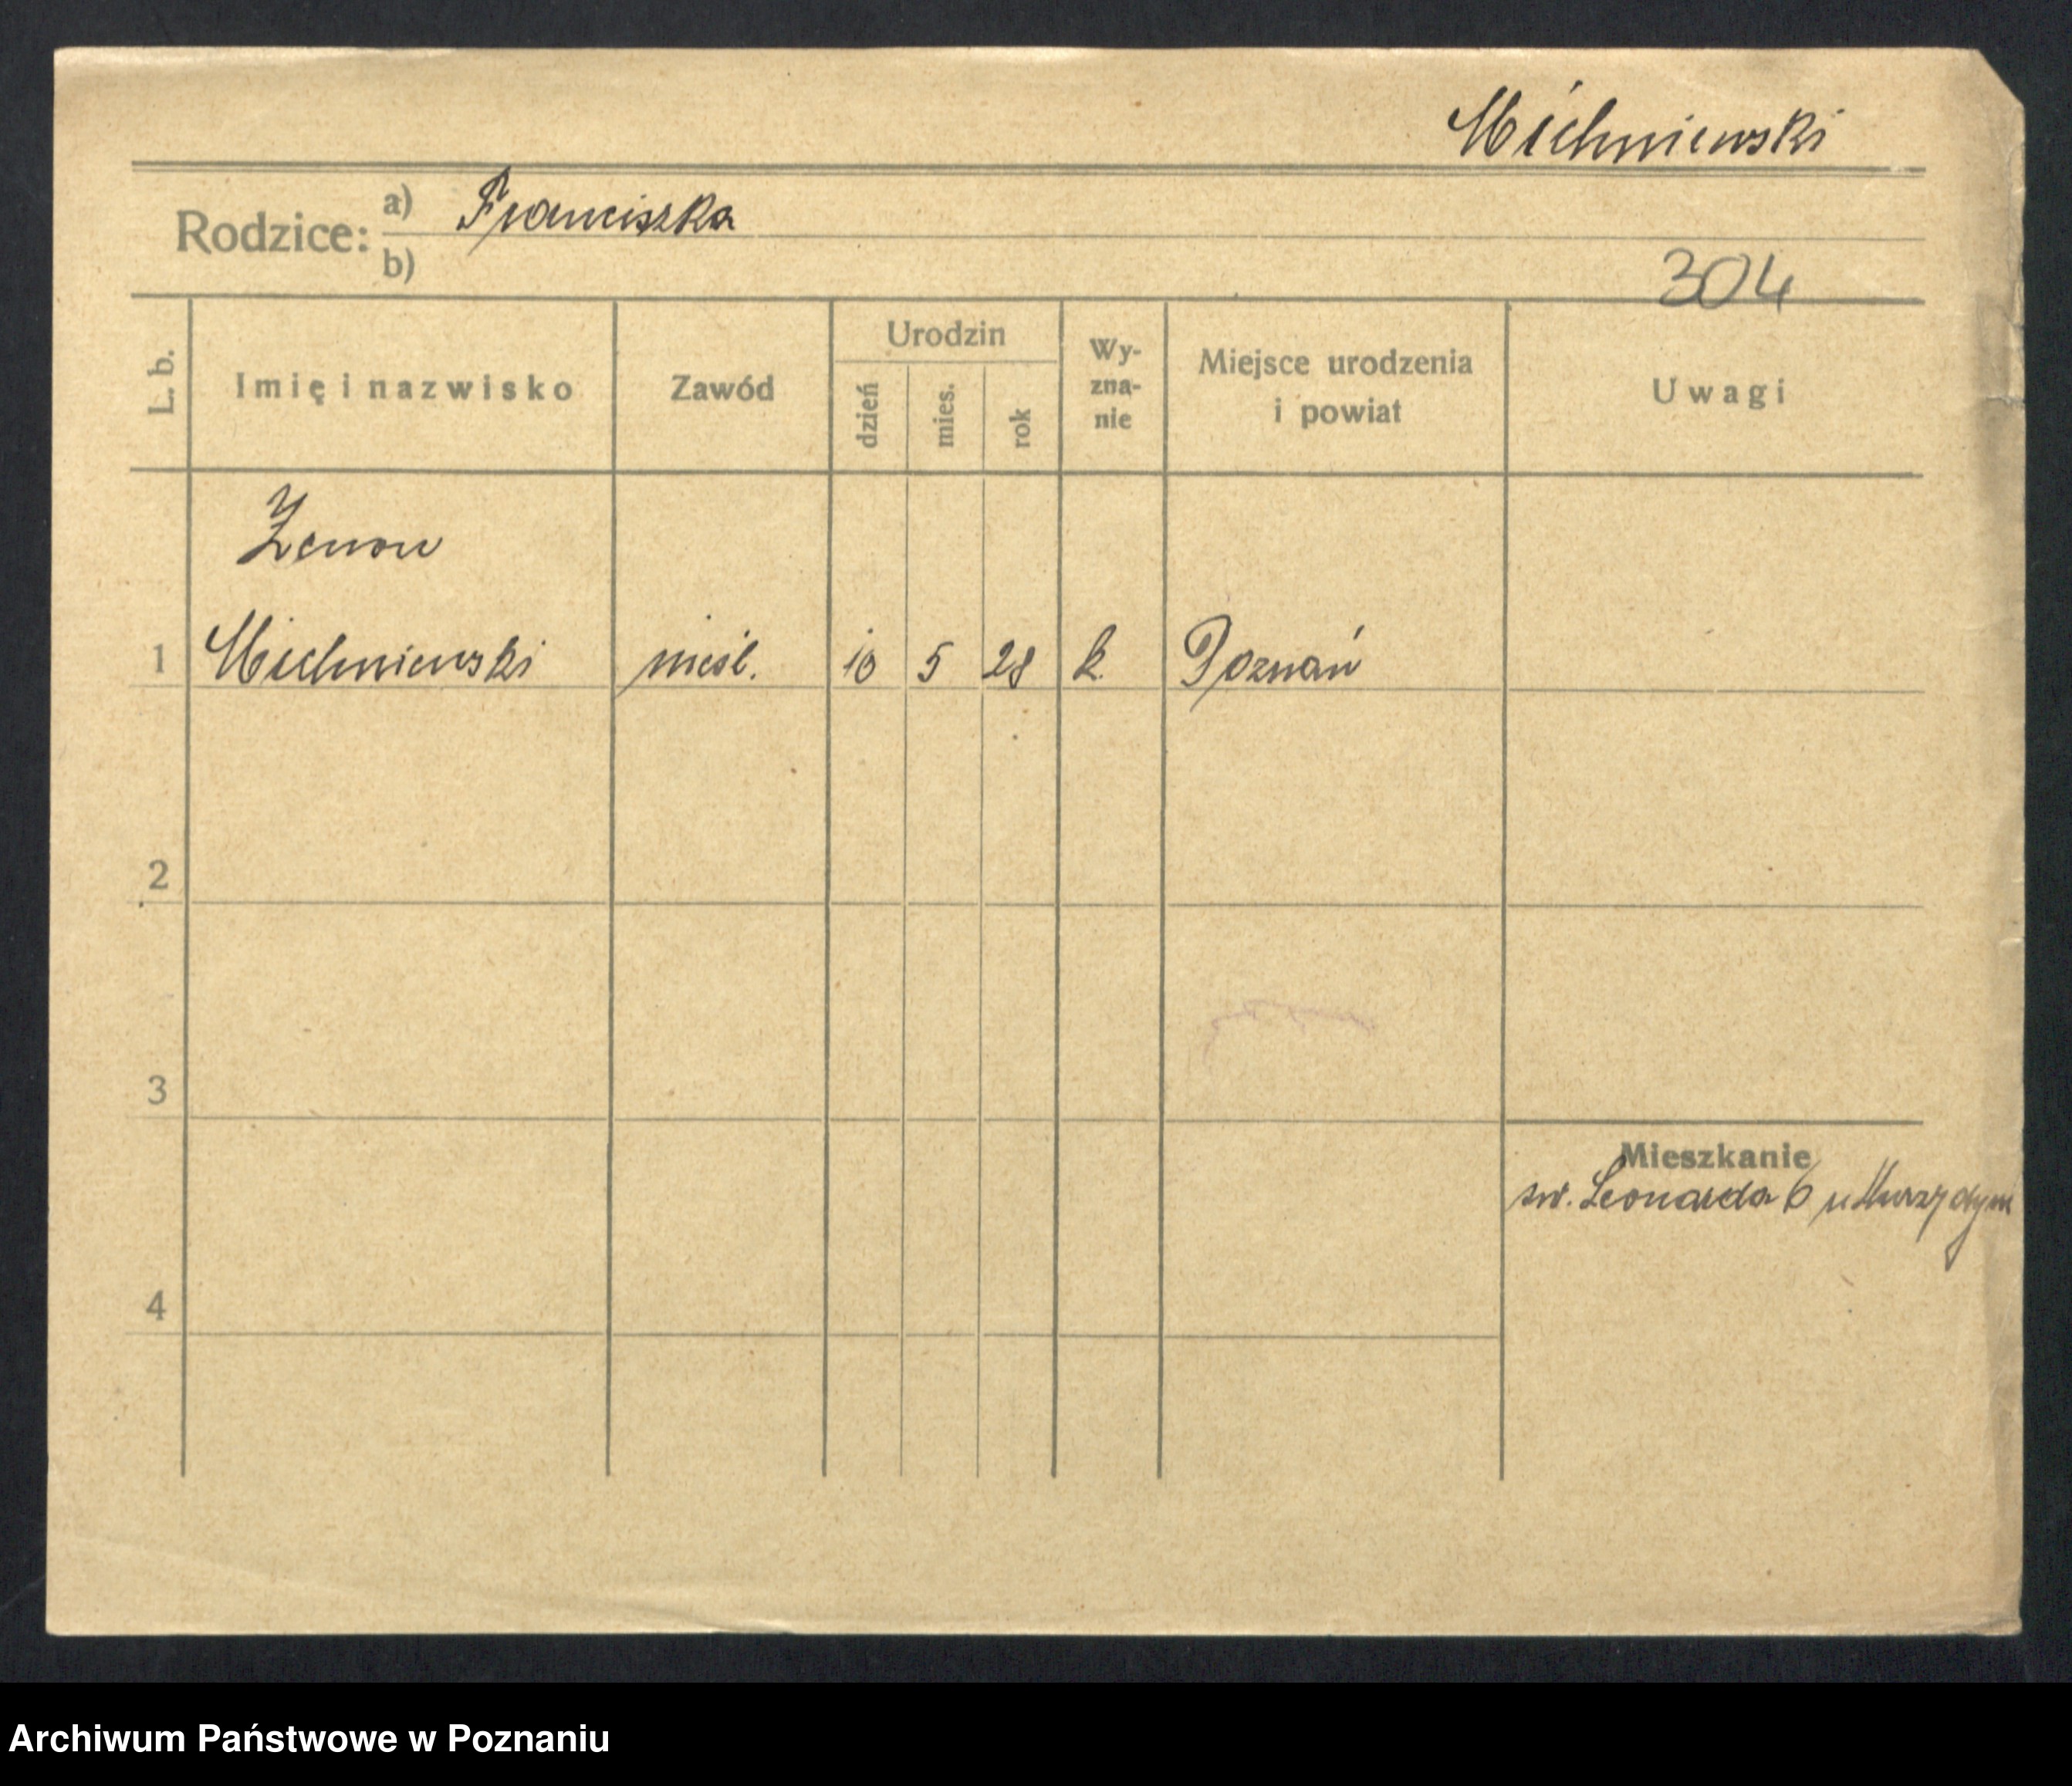 Michniewski
Rodzice:
a) Franciszka
b)
304
L. b.
Imię i nazwisko
Zawód
Urodzin
dzień
mies.
rok
Wy-
zna-
nie
Miejsce urodzenia
i powiat
Uwagi
Zenon
1 Michniewski nieśl. 10 5 28 k. Poznań
2
3
Mieszkanie
św. Leonarda 6 u
4
Archiwum Państwowe w Poznaniu